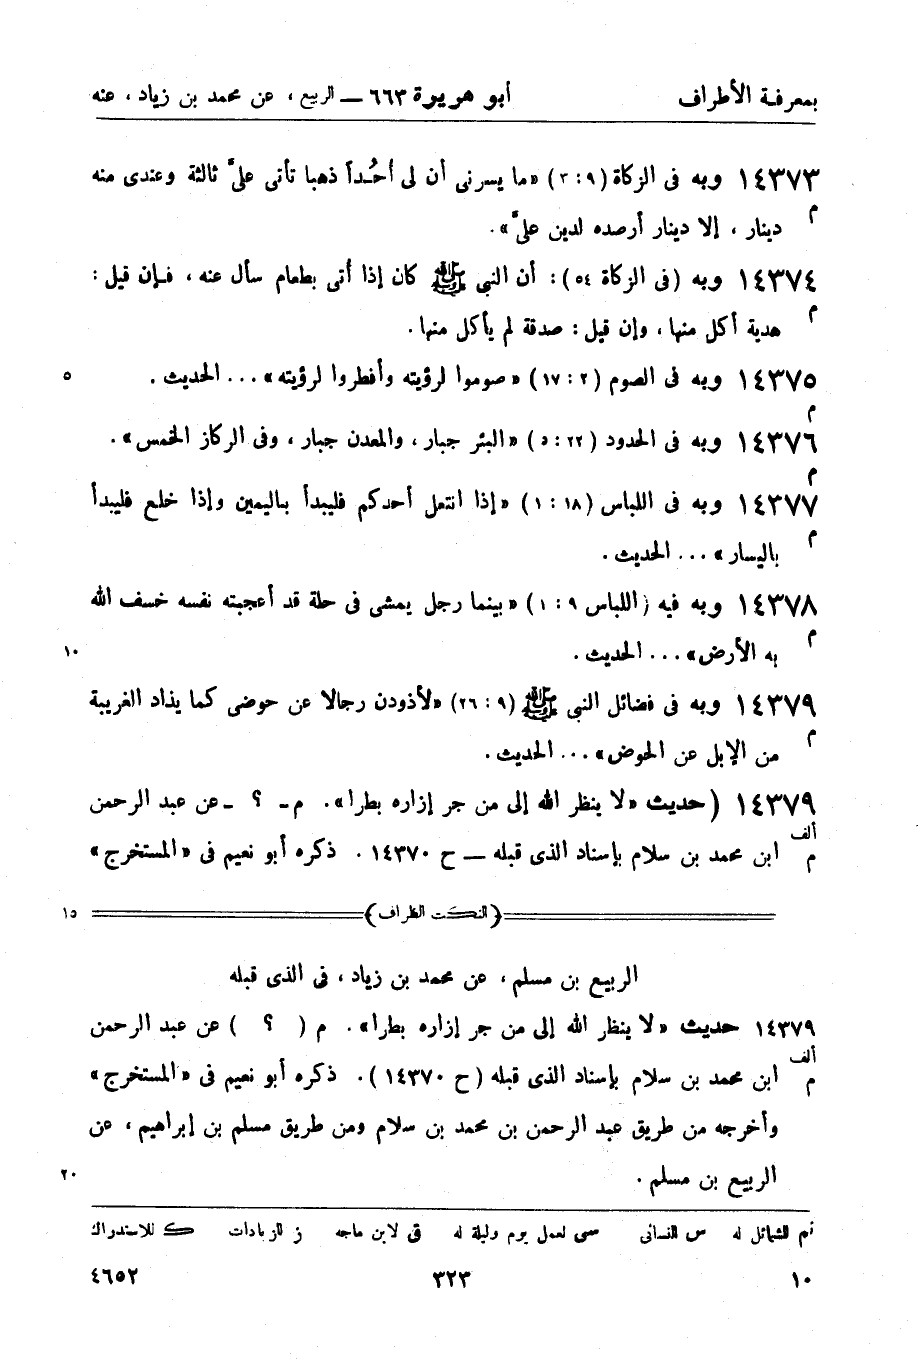 بمعرفة الأطراف أبو هريرة ٦٦٣ — الربيع ، عن محمد بن زياد ، عنه
١٤٣٧٣ وبه فى الزكاة (٩ : ٣) «ما يسرنى أن لى أُحُداً ذهبا تأتى علىَّ ثالثة وعندى منه
م دينار ، إلا دينار أرصده لدين علىَّ».
١٤٣٧٤ وبه (فى الزكاة ٥٤) : أن النبى ﷺ كان إذا أتى بطعام سأل عنه ، فإن قيل :
م هدية أكل منها ، وإن قيل : صدقة لم يأكل منها.
١٤٣٧٥ وبه فى الصوم (٢ : ١٧) «صوموا لرؤيته وأفطروا لرؤيته» ... الحديث . ٥
م
١٤٣٧٦ وبه فى الحدود (٢٢ : ٥) «البئر جبار ، والمعدن جبار ، وفى الركاز الخمس».
م
١٤٣٧٧ وبه فى اللباس (١٨ : ١) «إذا انتعل أحدكم فليبدأ باليمين وإذا خلع فليبدأ
م باليسار» ... الحديث .
١٤٣٧٨ وبه فيه (اللباس ٩ : ١) «بينما رجل يمشى فى حلة قد أعجبته نفسه خسف الله
م به الأرض» ... الحديث . ١٠
١٤٣٧٩ وبه فى فضائل النبى ﷺ (٩ : ٢٦) «لأذودن رجالا عن حوضى كما يذاد الغريبة
م من الإبل عن الحوض» ... الحديث .
١٤٣٧٩ (حديث «لا ينظر الله إلى من جر إزاره بطرا». م - ؟ - عن عبد الرحمن
ألف
م ابن محمد بن سلام بإسناد الذى قبله — ح ١٤٣٧٠ . ذكره أبو نعيم فى «المستخرج»
(النكت الظراف) ١٥
الربيع بن مسلم ، عن محمد بن زياد ، فى الذى قبله
١٤٣٧٩ حديث «لا ينظر الله إلى من جر إزاره بطرا». م ( ؟ ) عن عبد الرحمن
ألف
م ابن محمد بن سلام بإسناد الذى قبله (ح ١٤٣٧٠). ذكره أبو نعيم فى «المستخرج»
وأخرجه من طريق عبد الرحمن بن محمد بن سلام ومن طريق مسلم بن إبراهيم ، عن
الربيع بن مسلم . ٢٠
تم الشمائل له س للنسائى سى لعمل يوم وليلة له ق لابن ماجه ز للزيادات ك للاستدراك
١٠ ٣٢٣ ٤٦٥٢